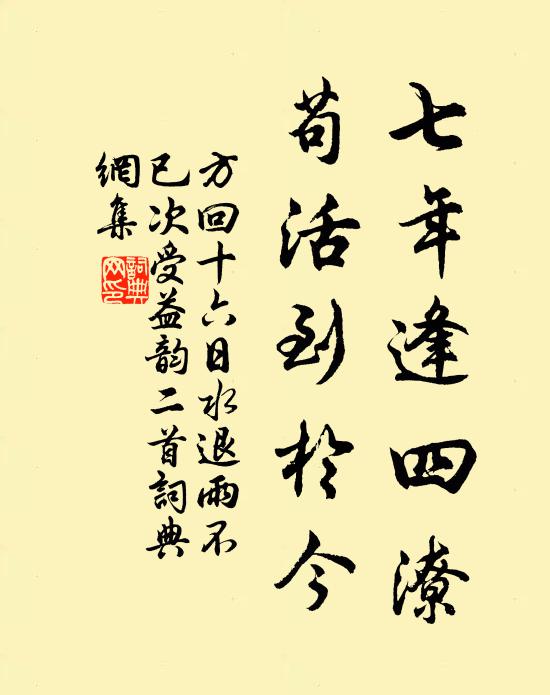 七年逢四潦
苟活到於今
方回十六日水退雨不
已次受益韵二首詞典
網集
詞典网印